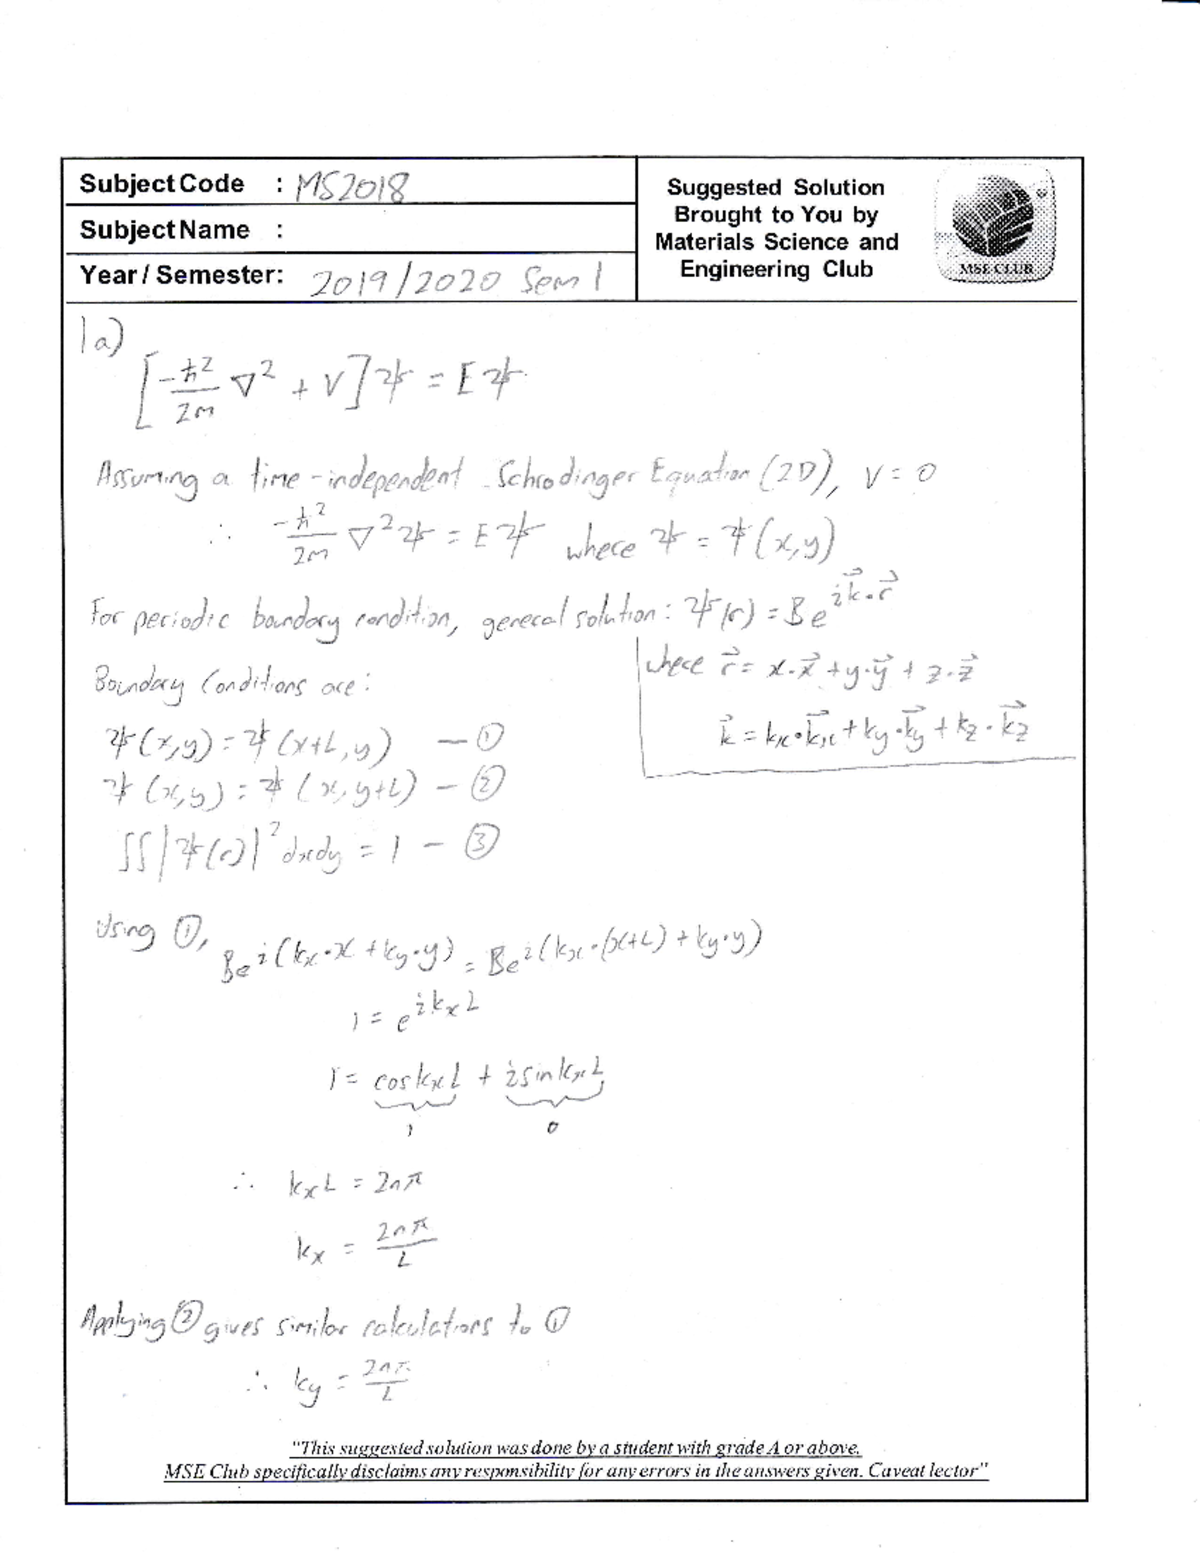 Subject Code : MS2018
Subject Name :
Year / Semester: 2019/2020 Sem 1
Suggested Solution
Brought to You by
Materials Science and
Engineering Club
MSE CLUB
1a)
[-ħ²/2m ∇² + V]Ψ = EΨ
Assuming a time-independent Schrodinger Equation (2D), V = 0
∴ -ħ²/2m ∇²Ψ = EΨ where Ψ = Ψ(x,y)
For periodic boundary condition, general solution: Ψ(r) = Be^{i\vec{k}·\vec{r}}
where \vec{r} = x·\vec{x} + y·\vec{y} + z·\vec{z}
\vec{k} = kx·\vec{kx} + ky·\vec{ky} + kz·\vec{kz}
Boundary Conditions are:
Ψ(x,y) = Ψ(x+L,y) — ①
Ψ(x,y) = Ψ(x,y+L) — ②
∫∫|Ψ(r)|² dxdy = 1 — ③
Using ①, Be^{i(kx·x + ky·y)} = Be^{i(kx·(x+L) + ky·y)}
1 = e^{ikxL}
1 = cos kxL + i sin kxL
1 0
∴ kxL = 2nπ
kx = 2nπ/L
Applying ② gives similar calculations to ①
∴ ky = 2nπ/L
"This suggested solution was done by a student with grade A or above.
MSE Club specifically disclaims any responsibility for any errors in the answers given. Caveat lector"